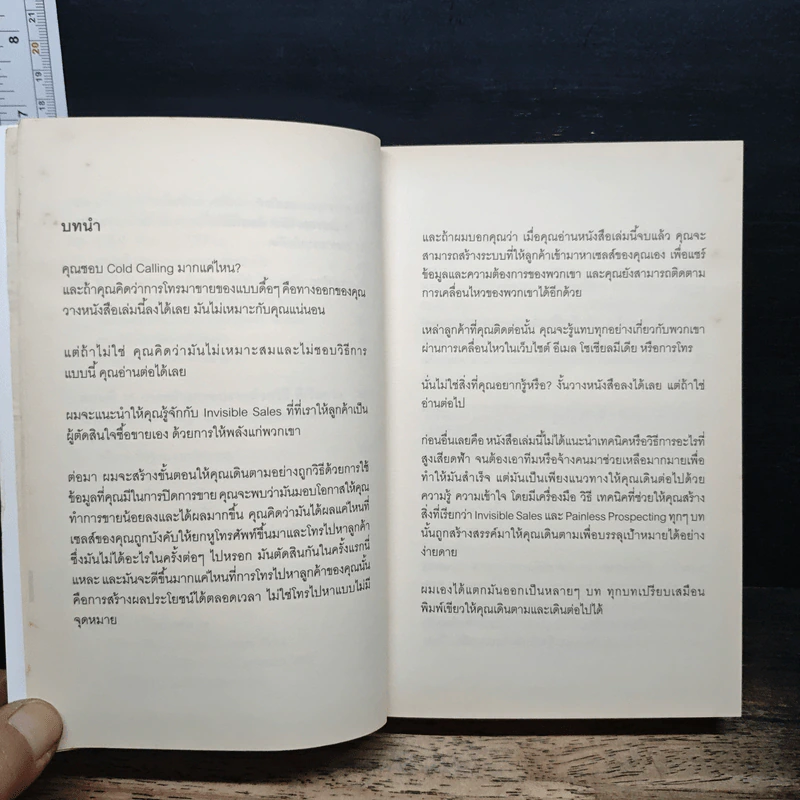 8
7
21
20
19
18
บทนำ
คุณชอบ Cold Calling มากแค่ไหน?
และถ้าคุณคิดว่าการโทรมาขายของแบบดื้อๆ คือทางออกของคุณ
วางหนังสือเล่มนี้ลงได้เลย มันไม่เหมาะกับคุณแน่นอน
แต่ถ้าไม่ใช่ คุณคิดว่ามันไม่เหมาะสมและไม่ชอบวิธีการ
แบบนี้ คุณอ่านต่อได้เลย
ผมจะแนะนำให้คุณรู้จักกับ Invisible Sales ที่ที่เราให้ลูกค้าเป็น
ผู้ตัดสินใจซื้อขายเอง ด้วยการให้พลังแก่พวกเขา
ต่อมา ผมจะสร้างขั้นตอนให้คุณเดินตามอย่างถูกวิธีด้วยการใช้
ข้อมูลที่คุณมีในการปิดการขาย คุณจะพบว่ามันมอบโอกาสให้คุณ
ทำการขายน้อยลงและได้ผลมากขึ้น คุณคิดว่ามันได้ผลแค่ไหนที่
เซลส์ของคุณถูกบังคับให้ยกหูโทรศัพท์ขึ้นมาและโทรไปหาลูกค้า
ซึ่งมันไม่ได้อะไรในครั้งต่อๆ ไปหรอก มันตัดสินกันในครั้งแรกนี่
แหละ และมันจะดีขึ้นมากแค่ไหนที่การโทรไปหาลูกค้าของคุณนั้น
คือการสร้างผลประโยชน์ได้ตลอดเวลา ไม่ใช่โทรไปหาแบบไม่มี
จุดหมาย
และถ้าผมบอกคุณว่า เมื่อคุณอ่านหนังสือเล่มนี้จบแล้ว คุณจะ
สามารถสร้างระบบที่ให้ลูกค้าเข้ามาหาเซลส์ของคุณเอง เพื่อแชร์
ข้อมูลและความต้องการของพวกเขา และคุณยังสามารถติดตาม
การเคลื่อนไหวของพวกเขาได้อีกด้วย
เหล่าลูกค้าที่คุณติดต่อนั้น คุณจะรู้แทบทุกอย่างเกี่ยวกับพวกเขา
ผ่านการเคลื่อนไหวในเว็บไซต์ อีเมล โซเชียลมีเดีย หรือการโทร
นั่นไม่ใช่สิ่งที่คุณอยากรู้หรือ? งั้นวางหนังสือลงได้เลย แต่ถ้าใช่
อ่านต่อไป
ก่อนอื่นเลยคือ หนังสือเล่มนี้ไม่ได้แนะนำเทคนิคหรือวิธีการอะไรที่
สูงเสียดฟ้า จนต้องเอาทีมหรือจ้างคนมาช่วยเหลือมากมายเพื่อ
ทำให้มันสำเร็จ แต่มันเป็นเพียงแนวทางให้คุณเดินต่อไปด้วย
ความรู้ ความเข้าใจ โดยมีเครื่องมือ วิธี เทคนิคที่ช่วยให้คุณสร้าง
สิ่งที่เรียกว่า Invisible Sales และ Painless Prospecting ทุกๆ บท
นั้นถูกสร้างสรรค์มาให้คุณเดินตามเพื่อบรรลุเป้าหมายได้อย่าง
ง่ายดาย
ผมเองได้แตกมันออกเป็นหลายๆ บท ทุกบทเปรียบเสมือน
พิมพ์เขียวให้คุณเดินตามและเดินต่อไปได้